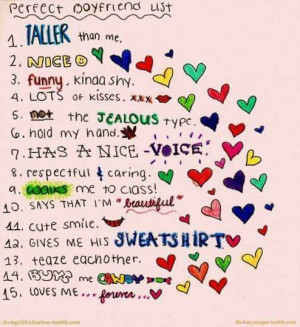 perfect boyfriend list
1. TALLER than me.
2. NICE
3. funny. kinda shy.
4. LOTS OF kisses. xxx
5. not the JEALOUS TYPE.
6. hold my hand.
7. HAS A NICE -VOICE-
8. respectful & caring.
9. WALKS me to class!
10. SAYS THAT I'M "beautiful"
11. cute smile.
12. GIVES ME HIS SWEATSHIRT
13. teaze eachother.
14. BUYS me CANDY
15. LOVES ME... forever...